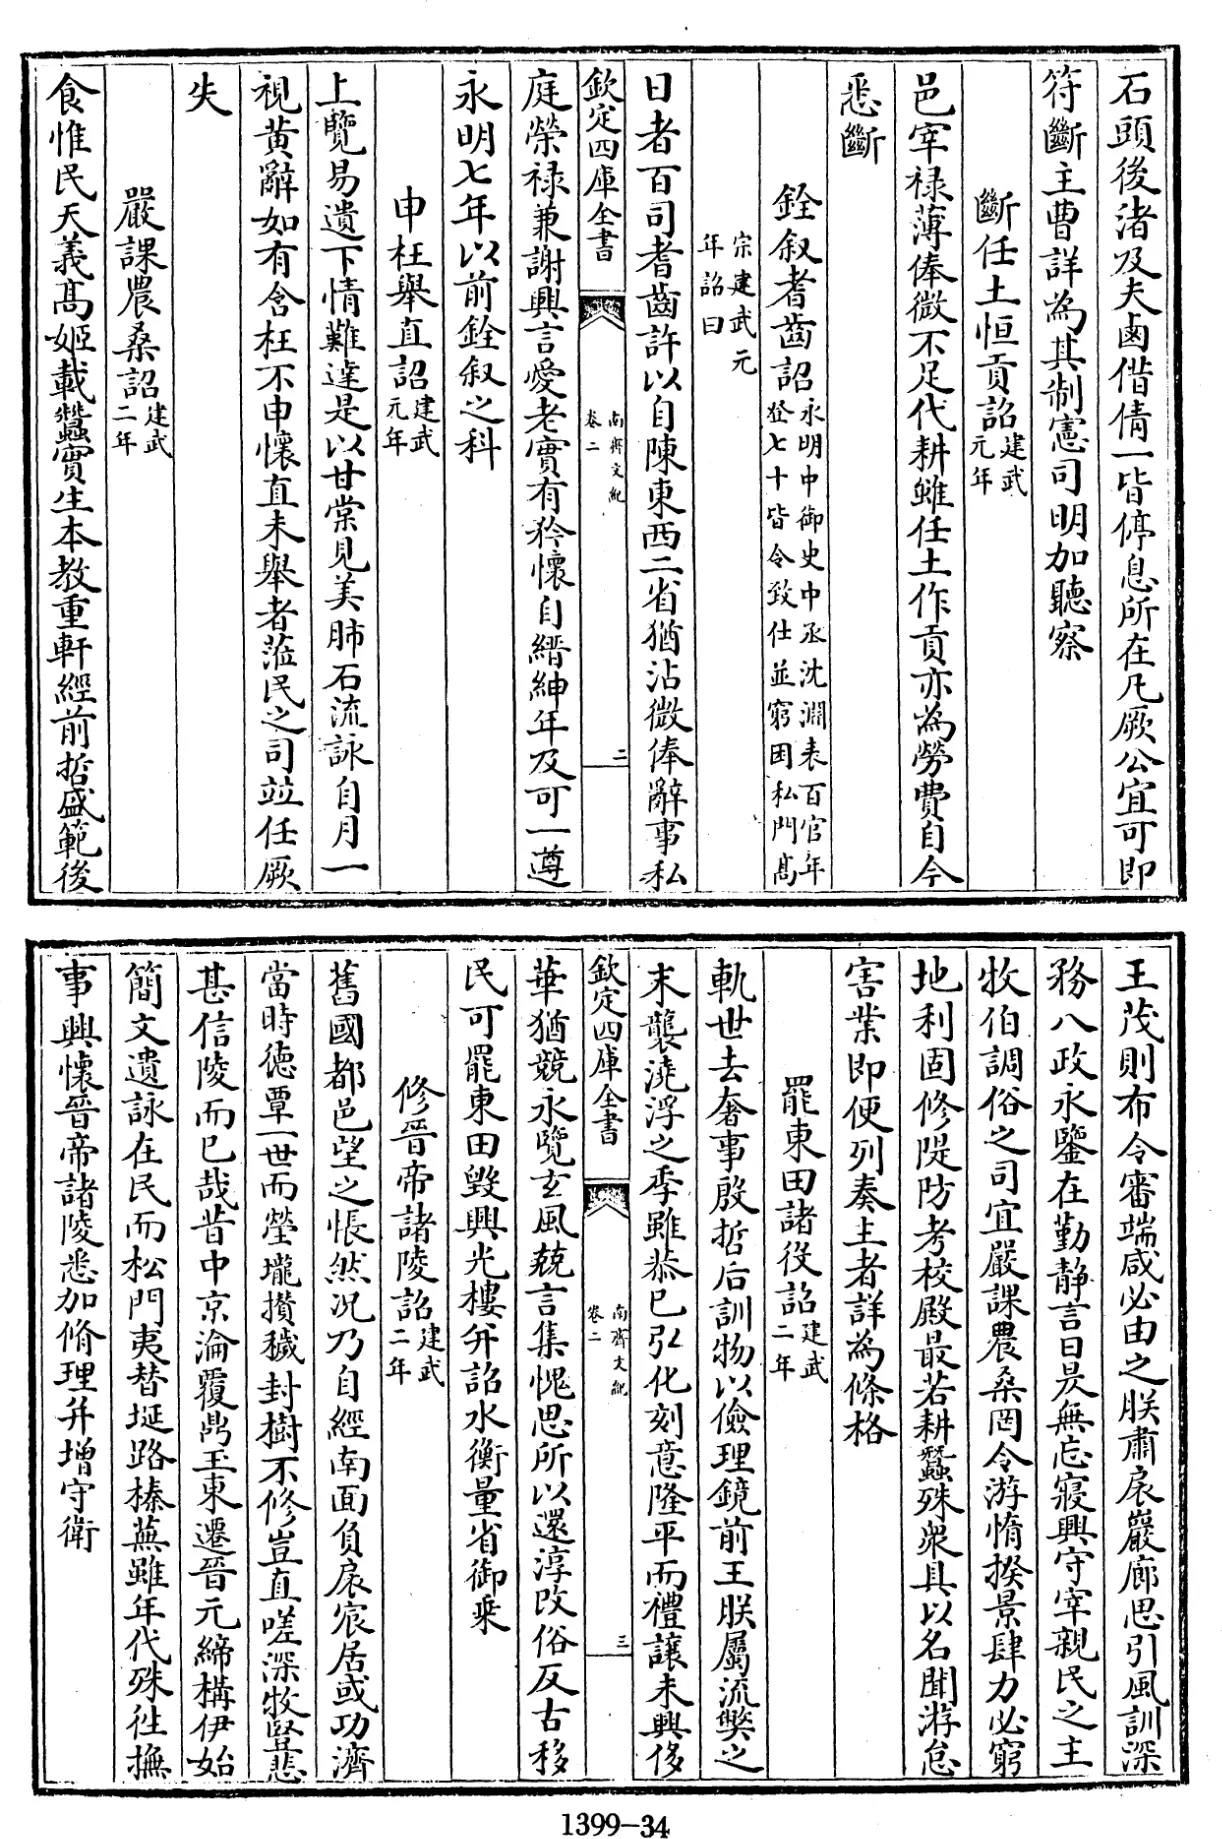 石頭後渚及夫鹵借倩一皆停息所在凡厥公宜可即
符斷主曹詳為其制憲司明加聽察
斷任土恒貢詔建武元年
邑宰禄薄俸微不足代耕雖任土作貢亦為勞費自今
悉斷
銓叙耆齒詔永明中御史中丞沈淵表百官年登七十皆令致仕並窮困私門髙
宗建武元年詔曰
日者百司耆齒許以自陳東西二省猶沾微俸辭事私
欽定四庫全書 南齊文紀 卷二 二
庭榮禄兼謝興言愛老實有矜懷自縉紳年及可一遵
永明七年以前銓叙之科
申枉舉直詔建武元年
上覽易遺下情難達是以甘棠見美肺石流詠自月一
視黄辭如有含枉不申懷直未舉者蒞民之司竝任厥
失
嚴課農桑詔建武二年
食惟民天義髙姬載蠶實生本教重軒經前哲盛範後
王茂則布令審端咸必由之朕肅扆巖廊思引風訓深
務八政永鑒在勤静言日昃無忘寢興守宰親民之主
牧伯調俗之司宜嚴課農桑罔令游惰揆景肆力必窮
地利固修隄防考校殿最若耕蠶殊衆具以名聞游怠
害業即便列奏主者詳為條格
罷東田諸役詔建武二年
軌世去奢事殷哲后訓物以儉理鏡前王朕屬流弊之
末襲澆浮之季雖恭已弘化刻意隆平而禮讓未興侈
欽定四庫全書 南齊文紀 卷二 三
華猶競永覽玄風兢言集愧思所以還淳改俗反古移
民可罷東田毀興光樓并詔水衡量省御乘
修晉帝諸陵詔建武二年
舊國都邑望之悵然況乃自經南面負扆宸居或功濟
當時德覃一世而塋壠攅穢封樹不修豈直嗟深牧豎悲
甚信陵而已哉昔中京淪覆鼎玉東遷晉元締構伊始
簡文遺詠在民而松門夷替埏路榛蕪雖年代殊徃撫
事興懷晉帝諸陵悉加脩理并增守衛
1399-34